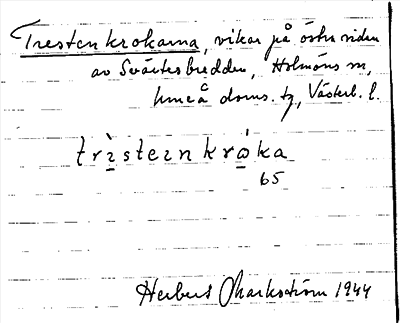 Trestenkrokarna, vikar på östra sidan
av Svärtesbredden, Holmöns sn,
Umeå doms. tg, Västerb. l.
trı̀steınkrȯ́ka
65
Herbert Markström 1944